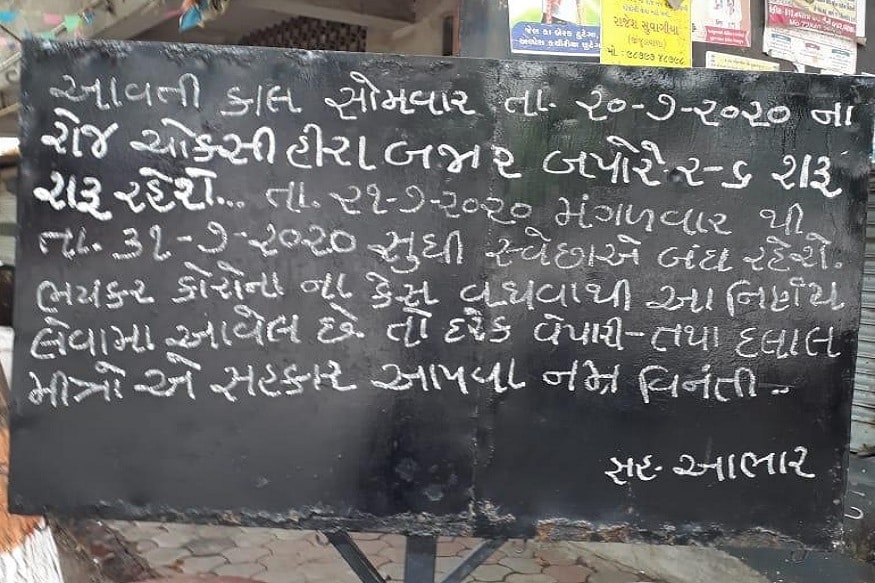 રાજેશ સુવાગીયા
આવતી કાલ સોમવાર તા. ૨૦-૭-૨૦૨૦ ના
રોજ ચોકસી હીરા બજાર બપોરે ૨-૬ શરૂ
શરૂ રહેશે... તા. ૨૧-૭-૨૦૨૦ મંગળવાર થી
તા. ૩૧-૭-૨૦૨૦ સુધી સ્વેછાએ બંધ રહેશે.
ભયંકર કોરોના ના કેસ વધવાથી આ નિર્ણય
લેવામા આવેલ છે. તો દરેક વેપારી-તથા દલાલ
મીત્રો એ સહકાર આપવા નમ્ર વિનંતી...
સહ-આભાર